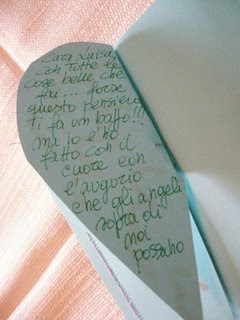 Cara Luisa,
con tutte le
cose belle che
fai... forse
questo pensiero
ti fa un baffo!!!
ma io l'ho
fatto con il
cuore con
l'augurio
che gli angeli
sopra di
noi
possano